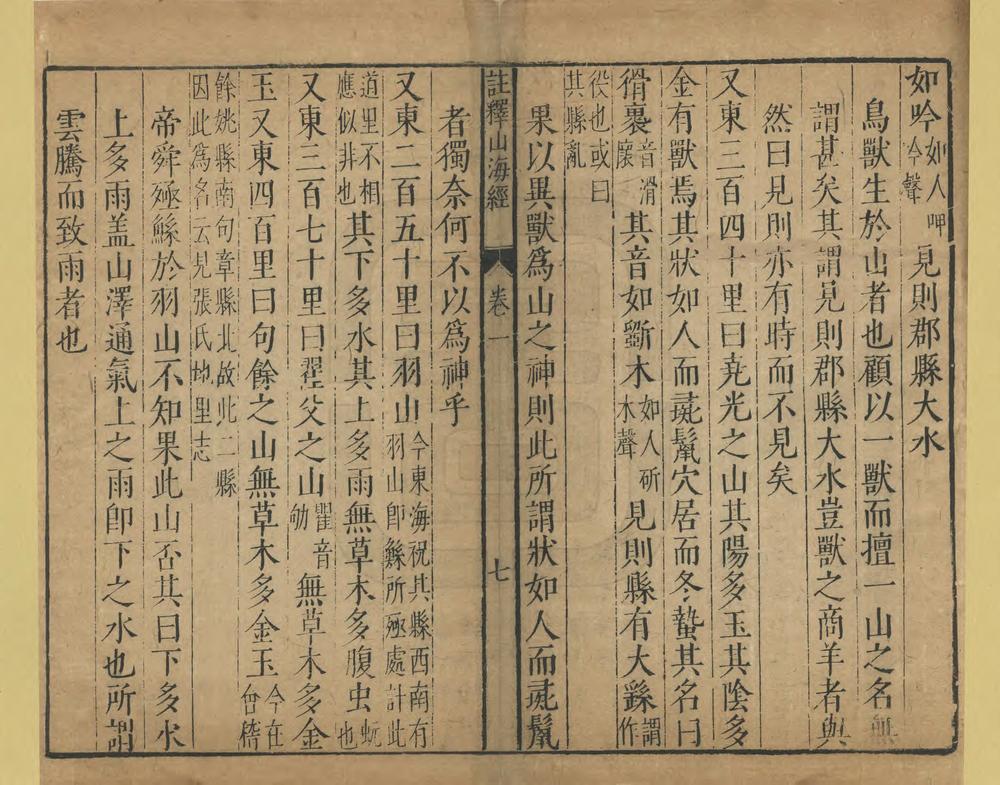 如吟如人呷吟聲見則郡縣大水
鳥獸生於山者也顧以一獸而擅一山之名無
謂甚矣其謂見則郡縣大水豈獸之商羊者與
然曰見則亦有時而不見矣
又東三百四十里曰堯光之山其陽多玉其陰多
金有獸焉其狀如人而彘鬣穴居而冬蟄其名曰
猾褢音滑懷其音如斵木如人斫木聲見則縣有大繇謂作
役也或曰其縣亂
果以異獸爲山之神則此所謂狀如人而彘鬣
註釋山海經 卷一 七
者獨奈何不以爲神乎
又東二百五十里曰羽山今東海祝其縣西南有羽山卽鯀所殛處計此
道里不相應似非也其下多水其上多雨無草木多腹虫蚖也
又東三百七十里曰瞿父之山瞿音劬無草木多金
玉又東四百里曰句餘之山無草木多金玉今在會稽
餘姚縣南句章縣北故此二縣因此爲名云見張氏地里志
帝舜殛鯀於羽山不知果此山否其曰下多水
上多雨盖山澤通氣上之雨卽下之水也所謂
雲騰而致雨者也